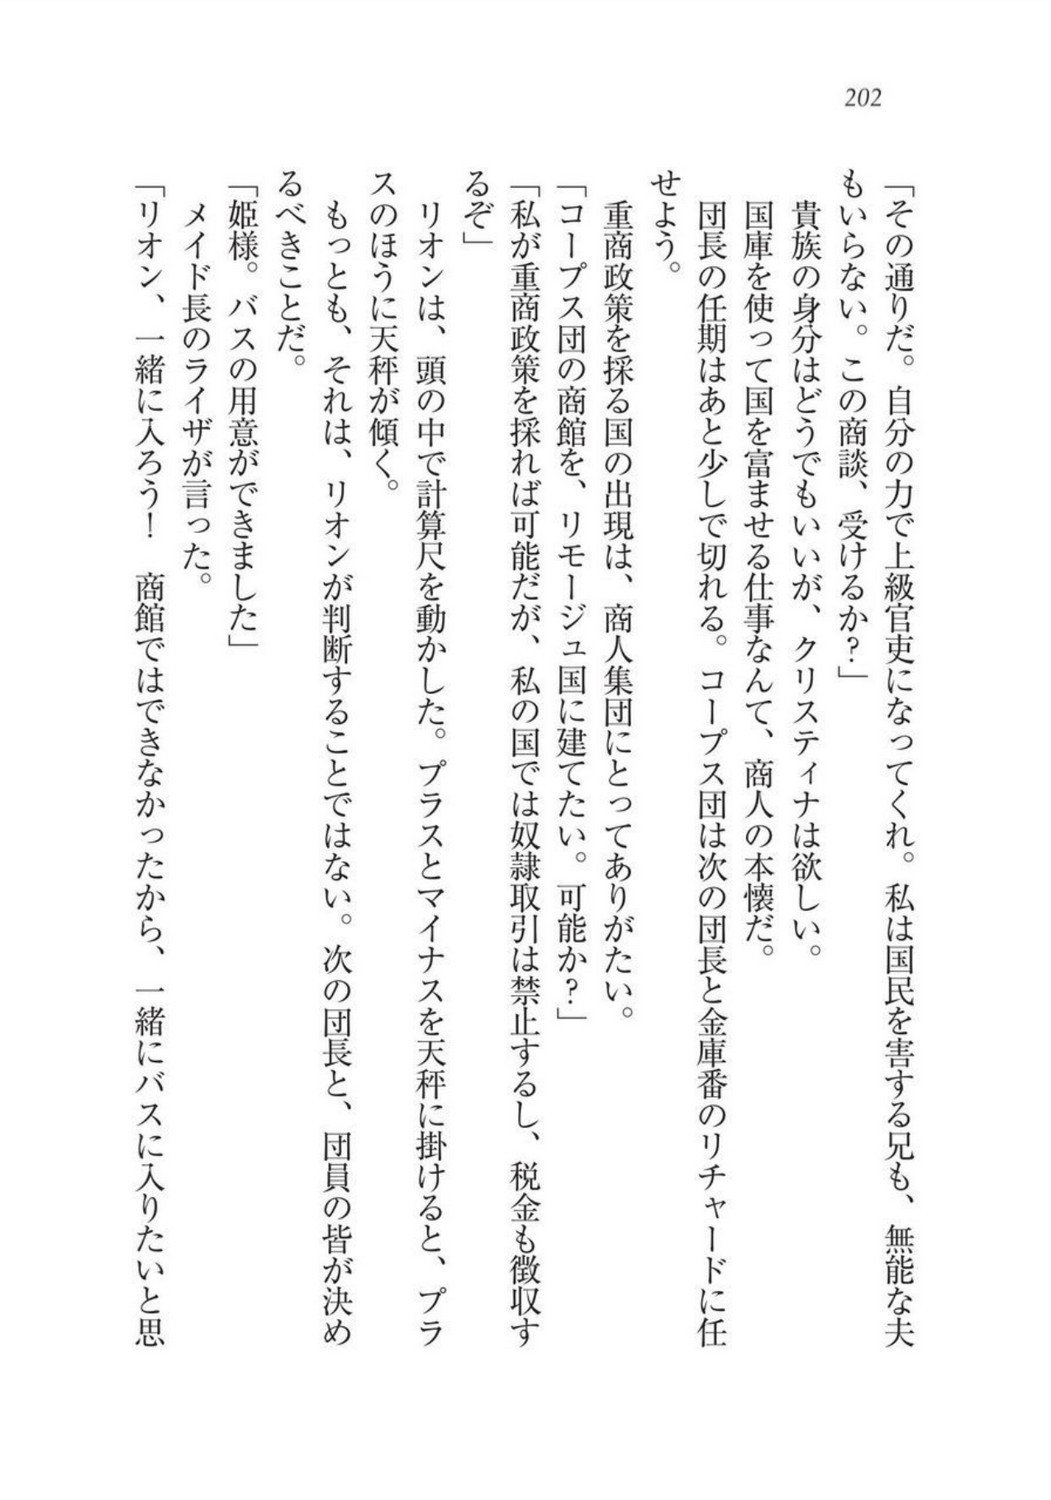 202
「その通りだ。自分の力で上級官吏になってくれ。私は国民を害する兄も、無能な夫
もいらない。この商談、受けるか？」
貴族の身分はどうでもいいが、クリスティナは欲しい。
国庫を使って国を富ませる仕事なんて、商人の本懐だ。
団長の任期はあと少しで切れる。コープス団は次の団長と金庫番のリチャードに任
せよう。
重商政策を採る国の出現は、商人集団にとってありがたい。
「コープス団の商館を、リモージュ国に建てたい。可能か？」
「私が重商政策を採れば可能だが、私の国では奴隷取引は禁止するし、税金も徴収す
るぞ」
リオンは、頭の中で計算尺を動かした。プラスとマイナスを天秤に掛けると、プラ
スのほうに天秤が傾く。
もっとも、それは、リオンが判断することではない。次の団長と、団員の皆が決め
るべきことだ。
「姫様。バスの用意ができました」
メイド長のライザが言った。
「リオン、一緒に入ろう！　商館ではできなかったから、一緒にバスに入りたいと思